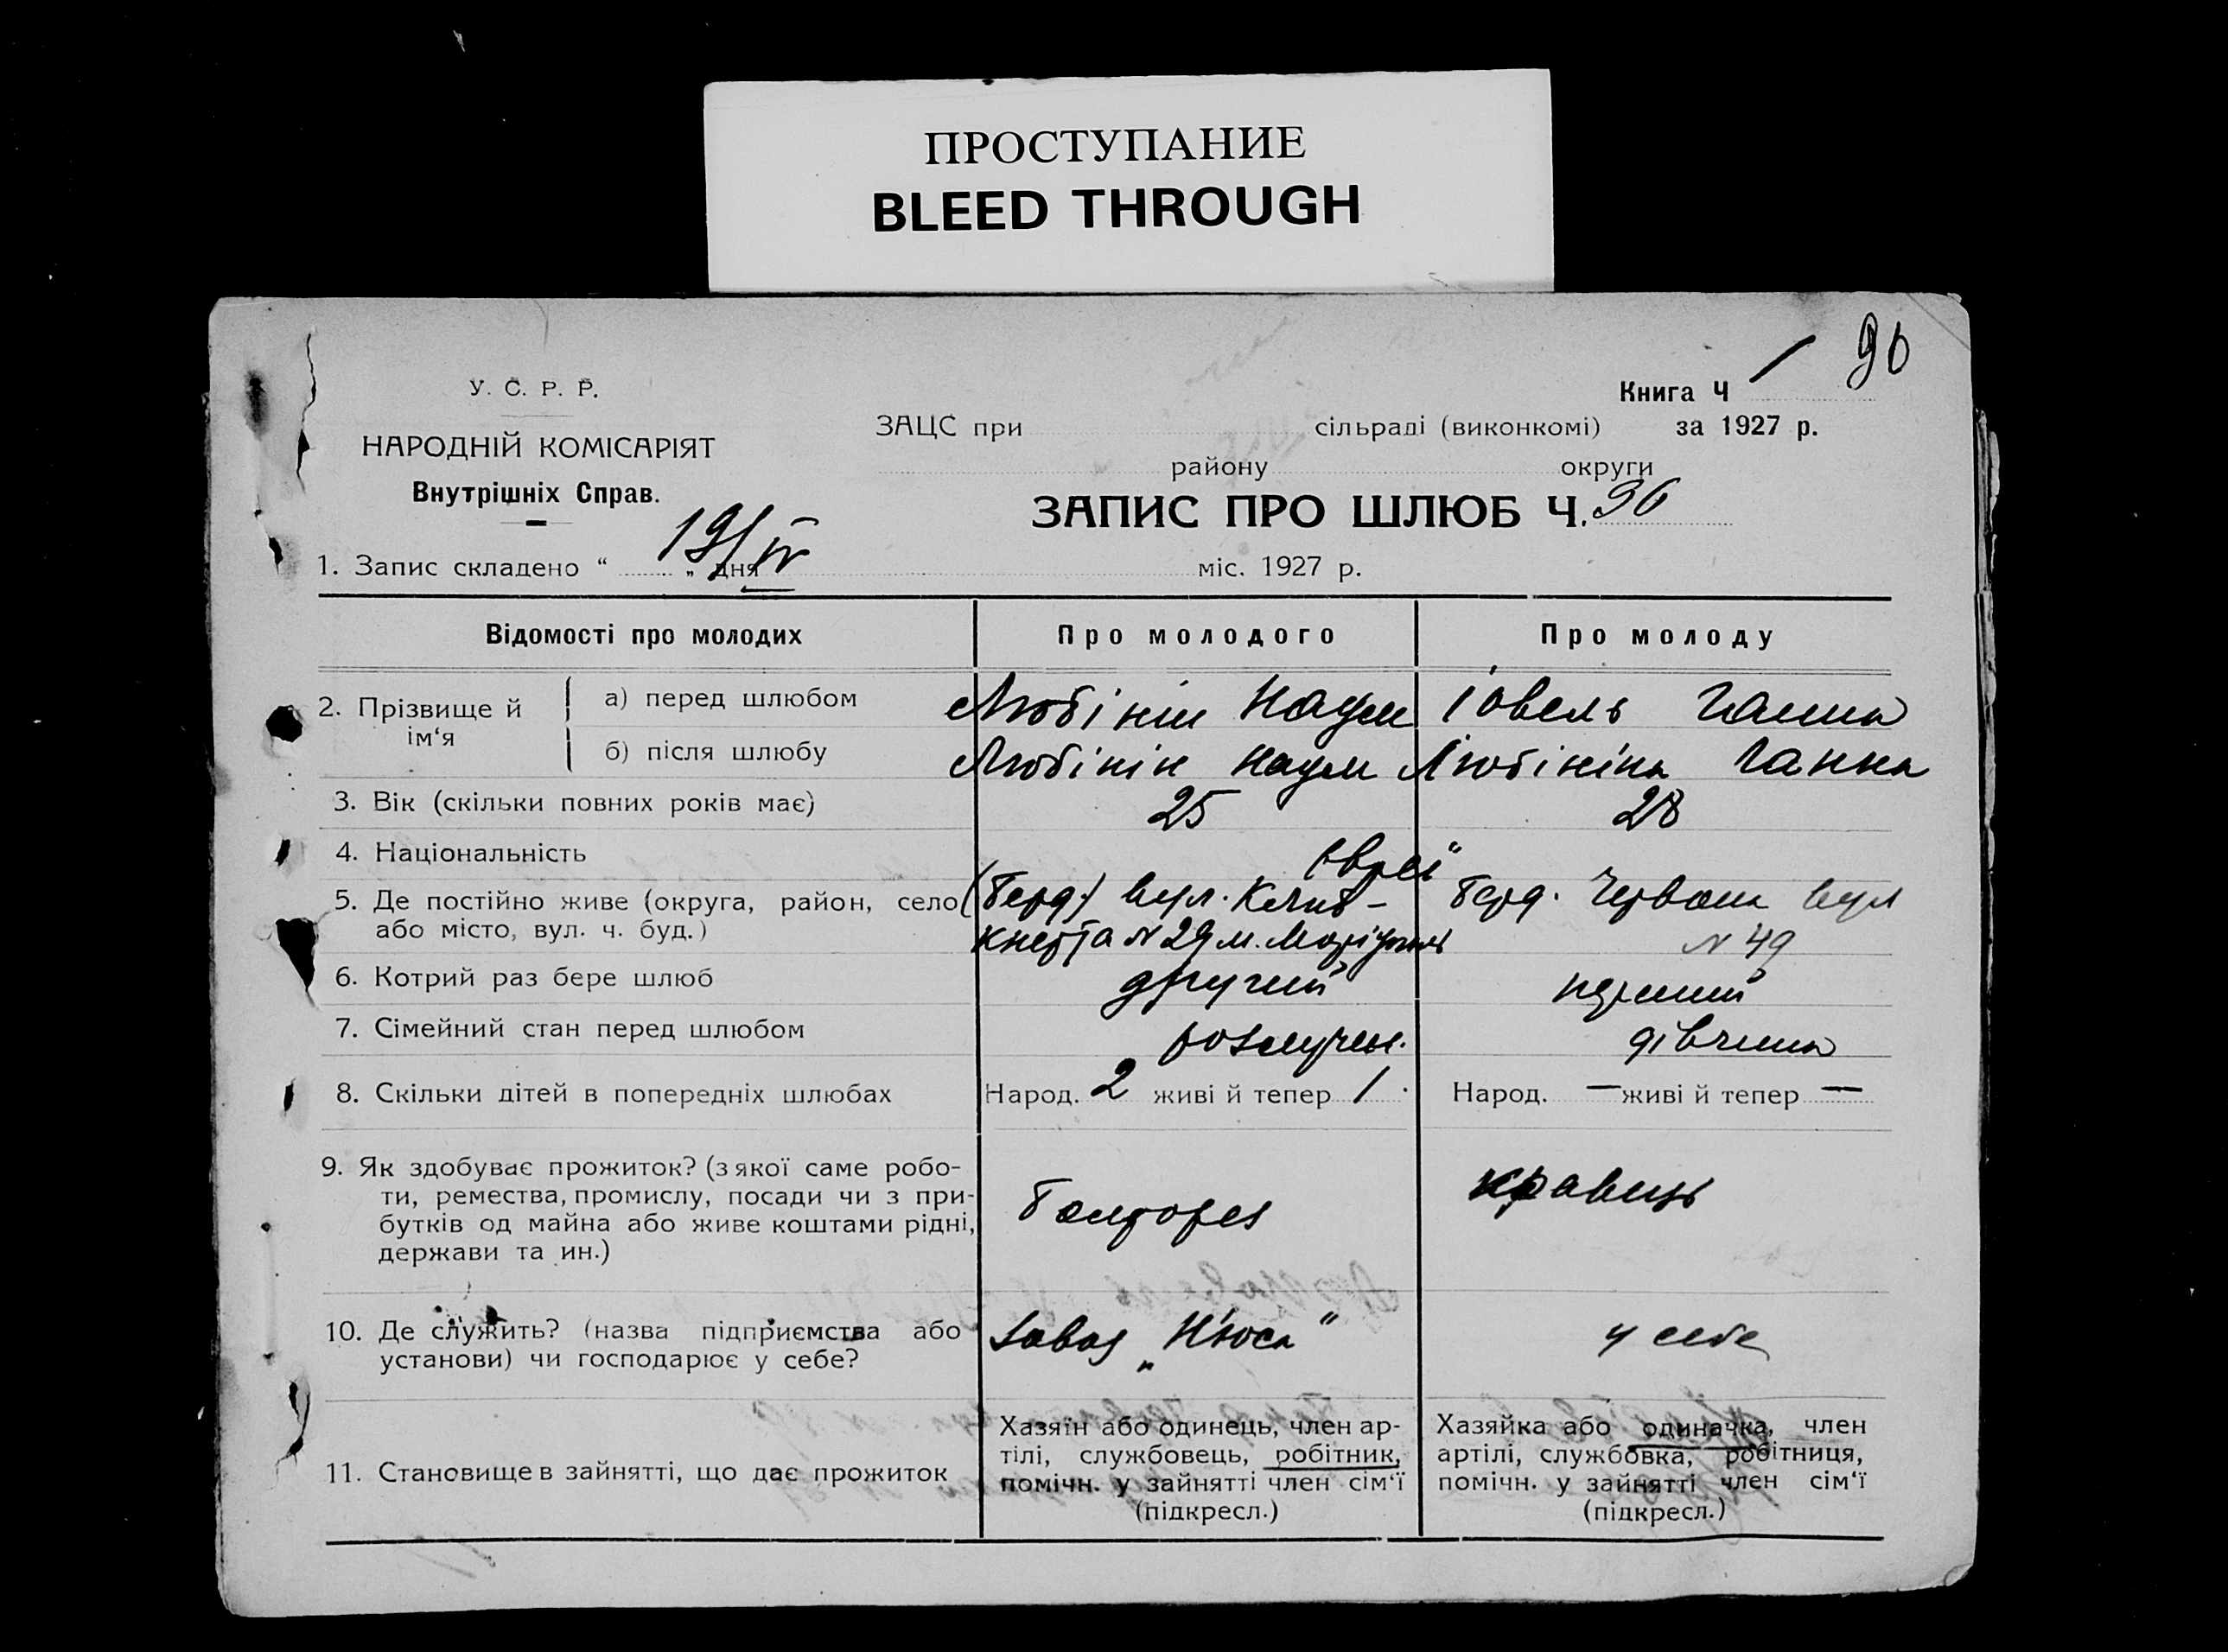 ПРОСТУПАНИЕ
BLEED THROUGH
90
У. С. Р. Р.
НАРОДНІЙ КОМІСАРІЯТ
Внутрішніх Справ.
Книга Ч 1
ЗАЦС при сільраді (виконкомі) за 1927 р.
району округи
ЗАПИС ПРО ШЛЮБ Ч. 96
1. Запис складено “ „ дня 19/IV міс. 1927 р.
Відомості про молодих Про молодого Про молоду
2. Прізвище й ім‘я
а) перед шлюбом Любінін Наум Іовель Ганна
б) після шлюбу Любінін Наум Любініна Ганна
3. Вік (скільки повних років має) 25 28
4. Національність євреї
5. Де постійно живе (округа, район, село (Берд.) вул. Лібкнехта Берд. Червона вул
або місто, вул. ч. буд.) N 29 м. Маріуполь N 49
6. Котрий раз бере шлюб другий перший
7. Сімейний стан перед шлюбом розлучен. дівчина
8. Скільки дітей в попередніх шлюбах Народ. 2 живі й тепер 1. Народ. — живі й тепер —
9. Як здобуває прожиток? (з якої саме робо-
ти, ремества, промислу, посади чи з при-
бутків од майна або живе коштами рідні,
держави та ин.)
болторез кравець
10. Де служить? (назва підприємства або
установи) чи господарює у себе?
Завод „Нюса“ у себе
11. Становище в зайнятті, що дає прожиток
Хазяїн або одинець, член ар-
тілі, службовець, робітник,
помічн. у зайнятті член сім‘ї
(підкресл.)
Хазяйка або одиначка, член
артілі, службовка, робітниця,
помічн. у зайнятті член сім‘ї
(підкресл.)